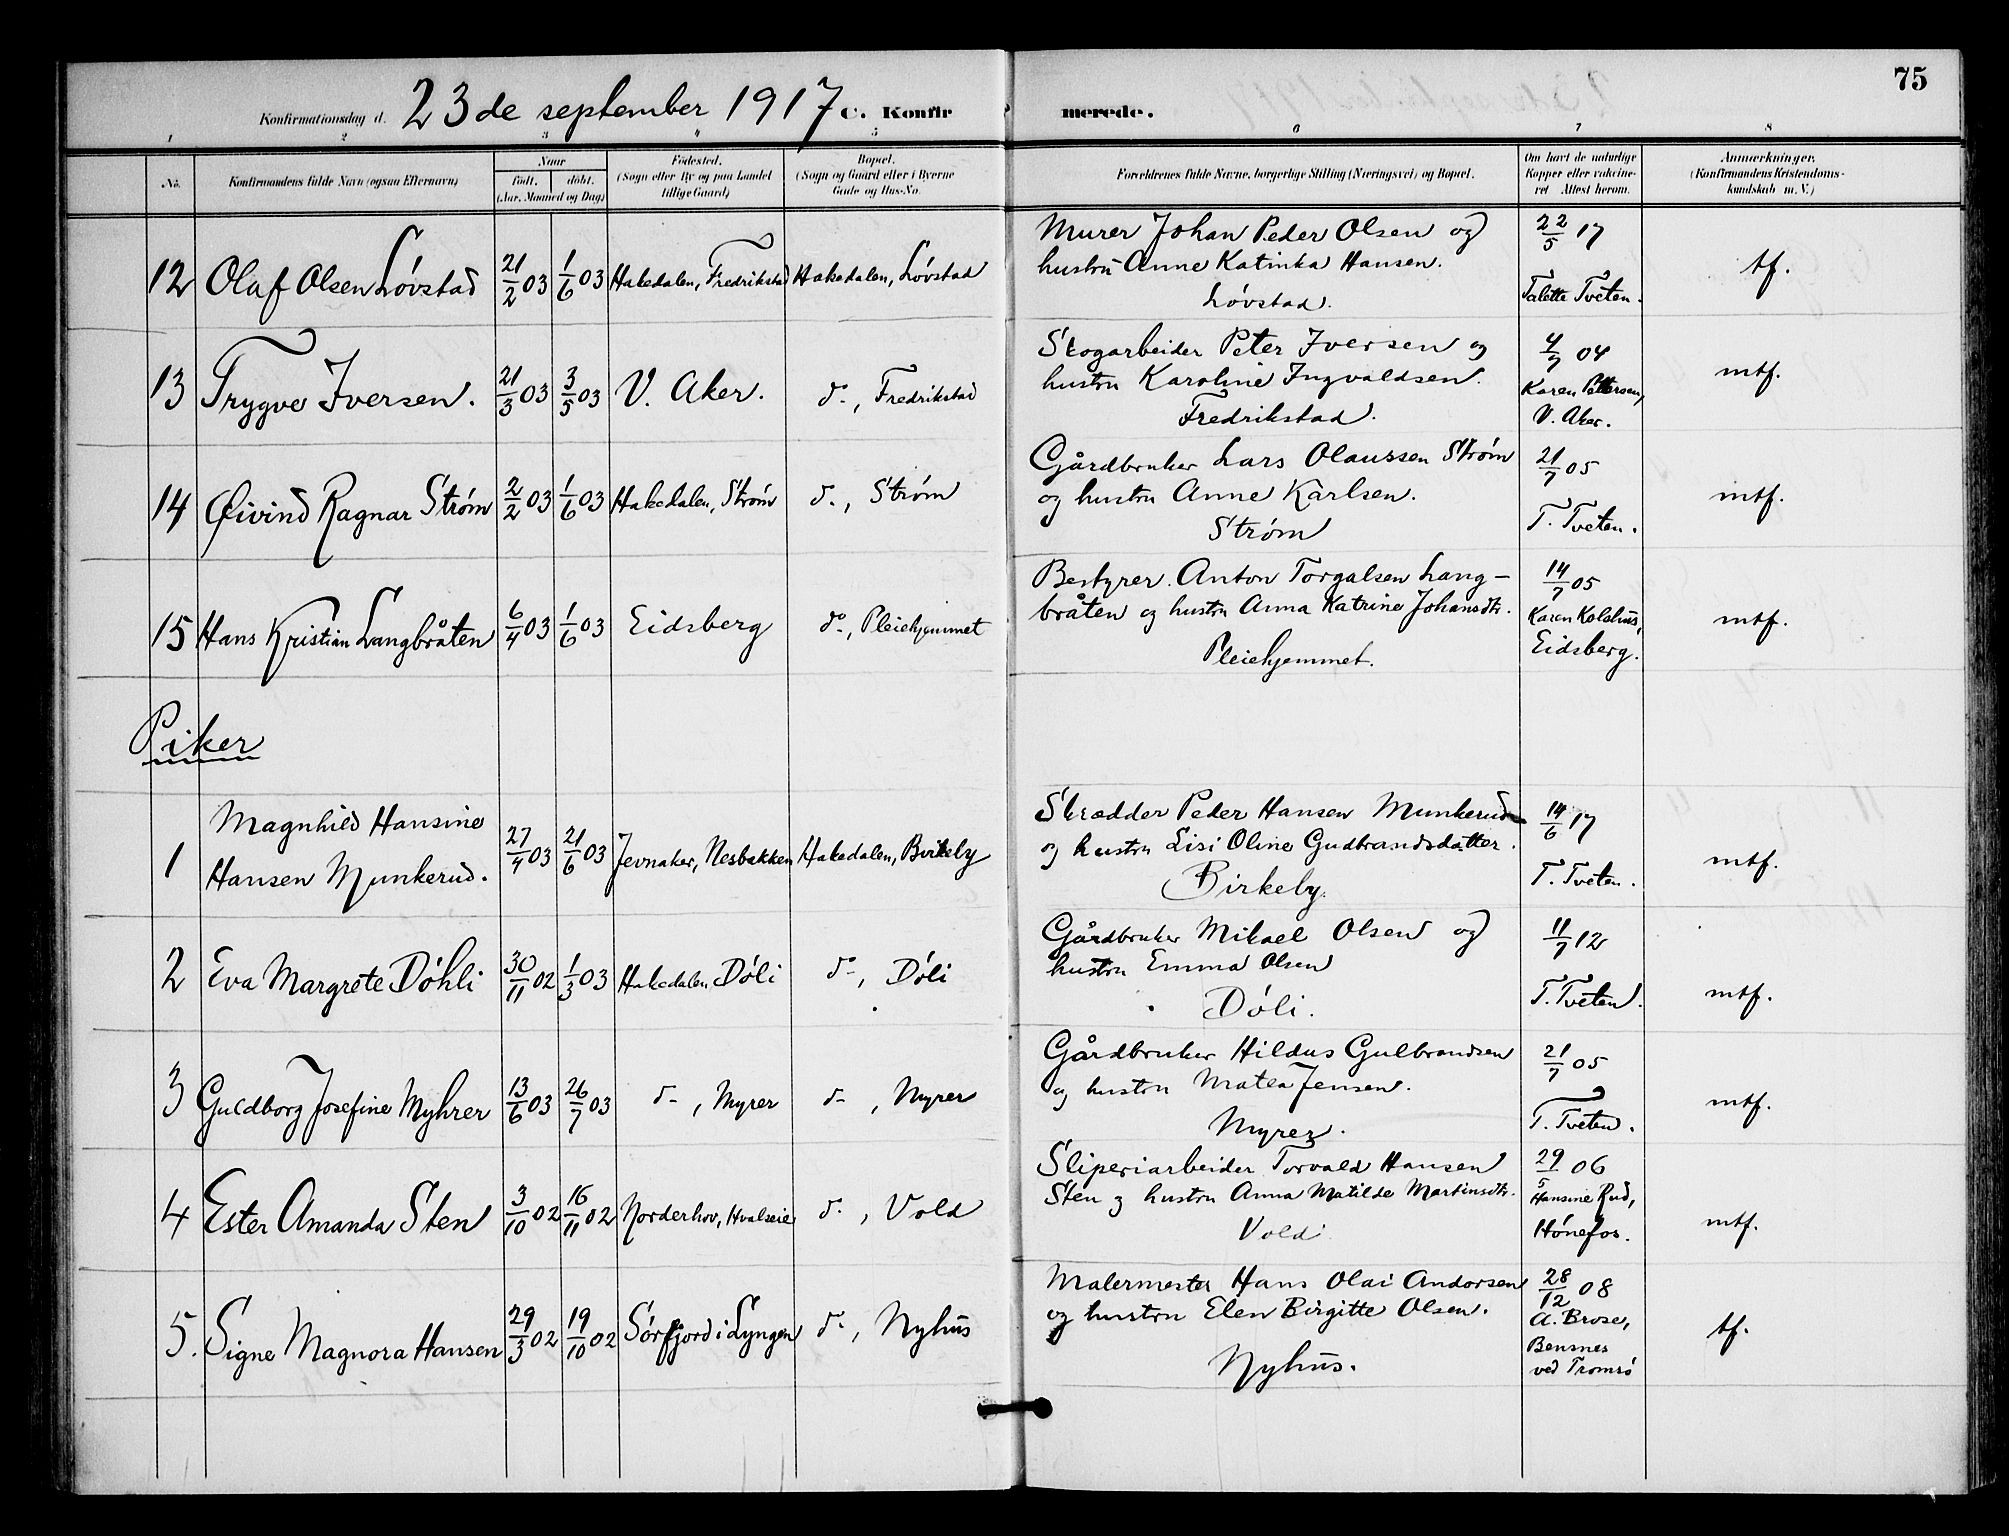 75
Konfirmationsdag d. 23de september 1917 C. Konfirmerede.
1 2 3 4 5 6 7 8
No. Konfirmandens fulde Navn (ogsaa Efternavn) Naar født. døbt. (Aar, Maaned og Dag) Fødested. (Sogn eller By og paa Landet tillige Gaard) Bopæl. (Sogn og Gaard eller i Byerne Gade og Hus-No. Forældrenes fulde Navne, borgerlige Stilling (Næringsvei) og Bopæl. Om havt de naturlige Kopper eller vakcineret Attest herom. Anmærkninger. (Konfirmandens Kristendomskundskab m. V.)
12 Olaf Olsen Løvstad 21/2 03 1/6 03 Hakedalen, Fredrikstad Hakedalen, Løvstad Murer Johan Peder Olsen og hustru Anne Katinka Hansen. Løvstad. 22/5 17 Talette Tveten. tf.
13 Trygve Iversen. 21/3 03 3/5 03 V. Aker. do, Fredrikstad Skogarbeider Peter Iversen og hustru Karoline Ingvaldsen. Fredrikstad. 4/7 04 Karen Pettersen, V. Aker. mtf.
14 Øivind Ragnar Strøm 2/2 03 1/6 03 Hakedalen, Strøm do, Strøm Gårdbruker Lars Olaussen Strøm og hustru Anne Karlsen. Strøm 21/7 05 T. Tveten. mtf.
15 Hans Kristian Langbråten 6/4 03 1/6 03 Eidsberg do, Pleiehjemmet Bestyrer Anton Torgalsen Langbråten og hustru Anna Katrine Johansdtr. Pleiehjemmet. 14/7 05 Karen Kolshus, Eidsberg. mtf.
Piker
1 Magnhild Hansine Hansen Munkerud. 27/4 03 21/6 03 Jevnaker, Nesbakken Hakedalen, Birkeby Skrædder Peder Hansen Munkerud og hustru Lisi Oline Gudbrandsdatter. Birkeby. 14/6 17 T. Tveten. mtf.
2 Eva Margrete Døhli 30/11 02 1/3 03 Hakedalen Døli do, Døli Gårdbruker Mikael Olsen og hustru Emma Olsen Døli. 11/7 12 T. Tveten. mtf.
3 Guldborg Josefine Myhrer 13/6 03 26/7 03 do, Myrer do, Myrer Gårdbruker Hildus Gulbrandsen og hustru Matea Jensen. Myrer. 21/7 05 T. Tveten. mtf.
4 Ester Amanda Sten 3/10 02 16/11 02 Norderhov, Hvalseie do, Vold Sliperiarbeider Torvald Hansen Sten og hustru Anna Matilde Martinsdtr. Vold 29/5 06 Hansine Rud, Hønefos. mtf.
5. Signe Magnora Hansen 29/3 02 19/10 02 Sørfjord i Lyngen do, Nyhus Malermester Hans Olai Andorsen og hustru Elen Birgitte Olsen. Nyhus. 28/12 08 A. Brose, Bensnes ved Tromsø tf.